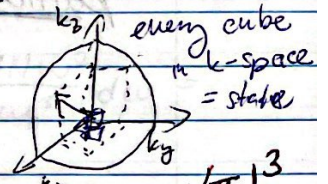 kz every cube
in k-space
= state
ky
3